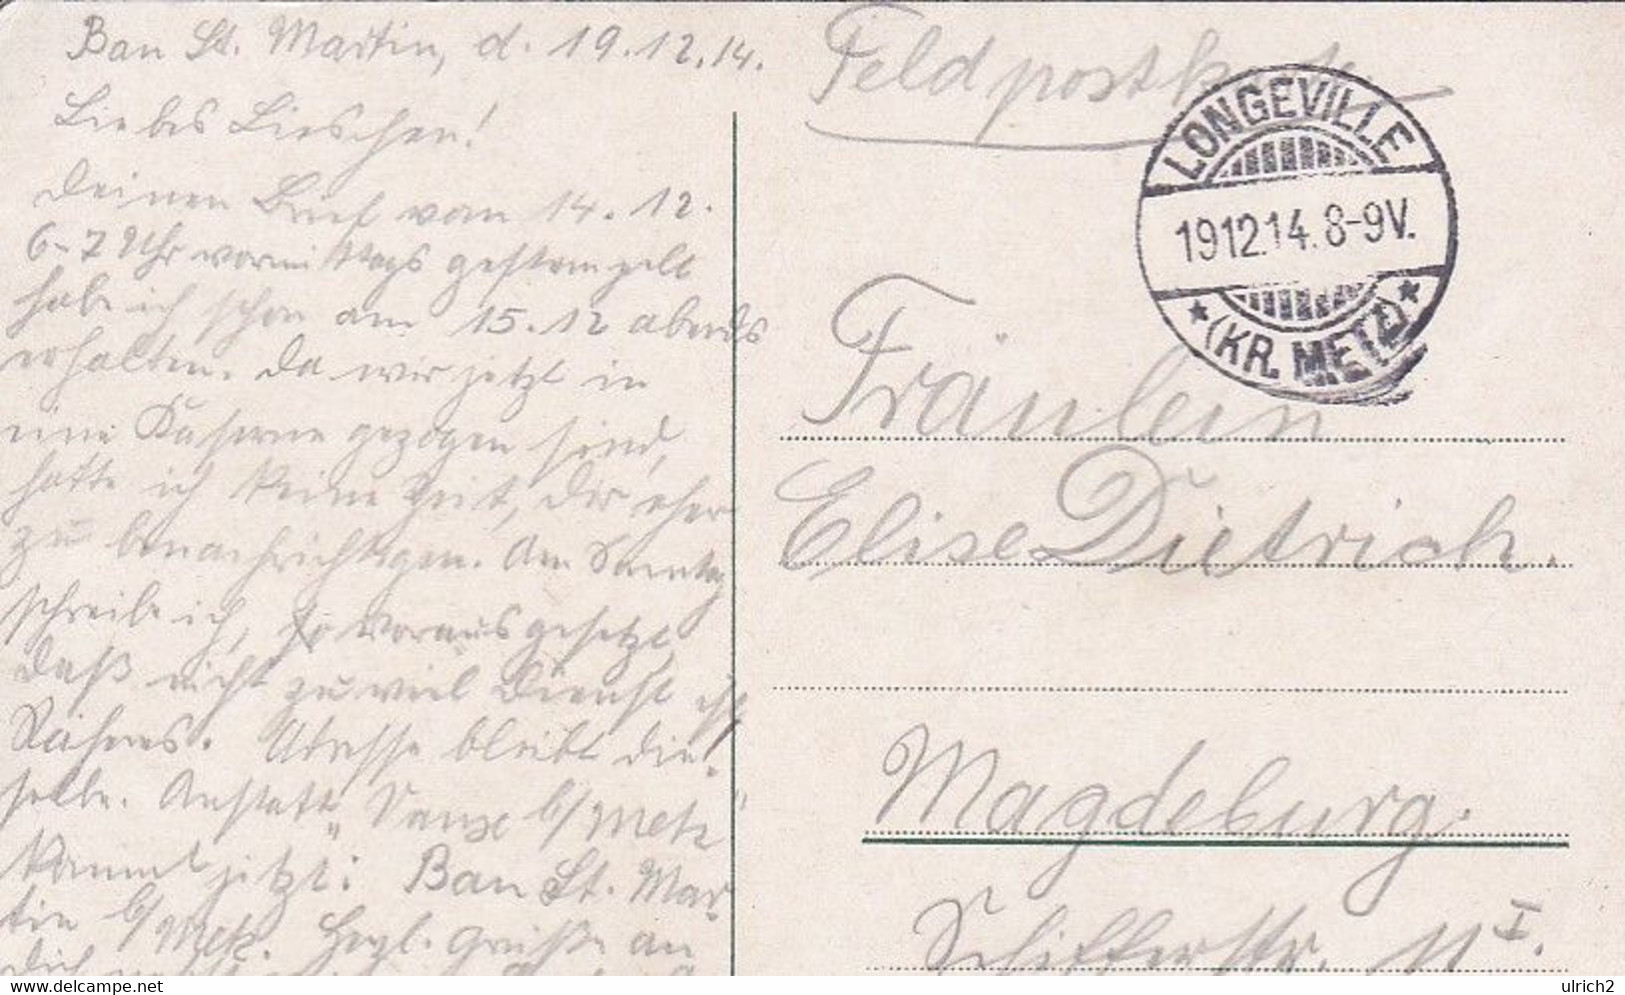 Ban St. Martin, d. 19.12.14.
Liebes Lieschen!
Deinen Brief vom 14. 12.
6-7 Uhr vormittags gestempelt
habe ich schon am 15.12 abends
erhalten. Da wir jetzt in
eine Kaserne gezogen sind,
hatte ich keine Zeit, Dir eher
zu benachrichtigen. Am Sonntag
schreibe ich, vorausgesetzt,
daß nicht zu viel Dienst ist
Näheres. Adresse bleibt die-
selbe. Anstatt „Vaux b/Metz"
kommt jetzt: Ban St. Mar-
tin b/Metz. Herzl. Grüße an
Dich
Feldpostkarte
LONGEVILLE
19.12.14. 8-9V.
* (KR. METZ) *
Fräulein
Elise Dietrich.
Magdeburg.
Schifferstr. 11 I.
www.delcampe.net
ulrich2